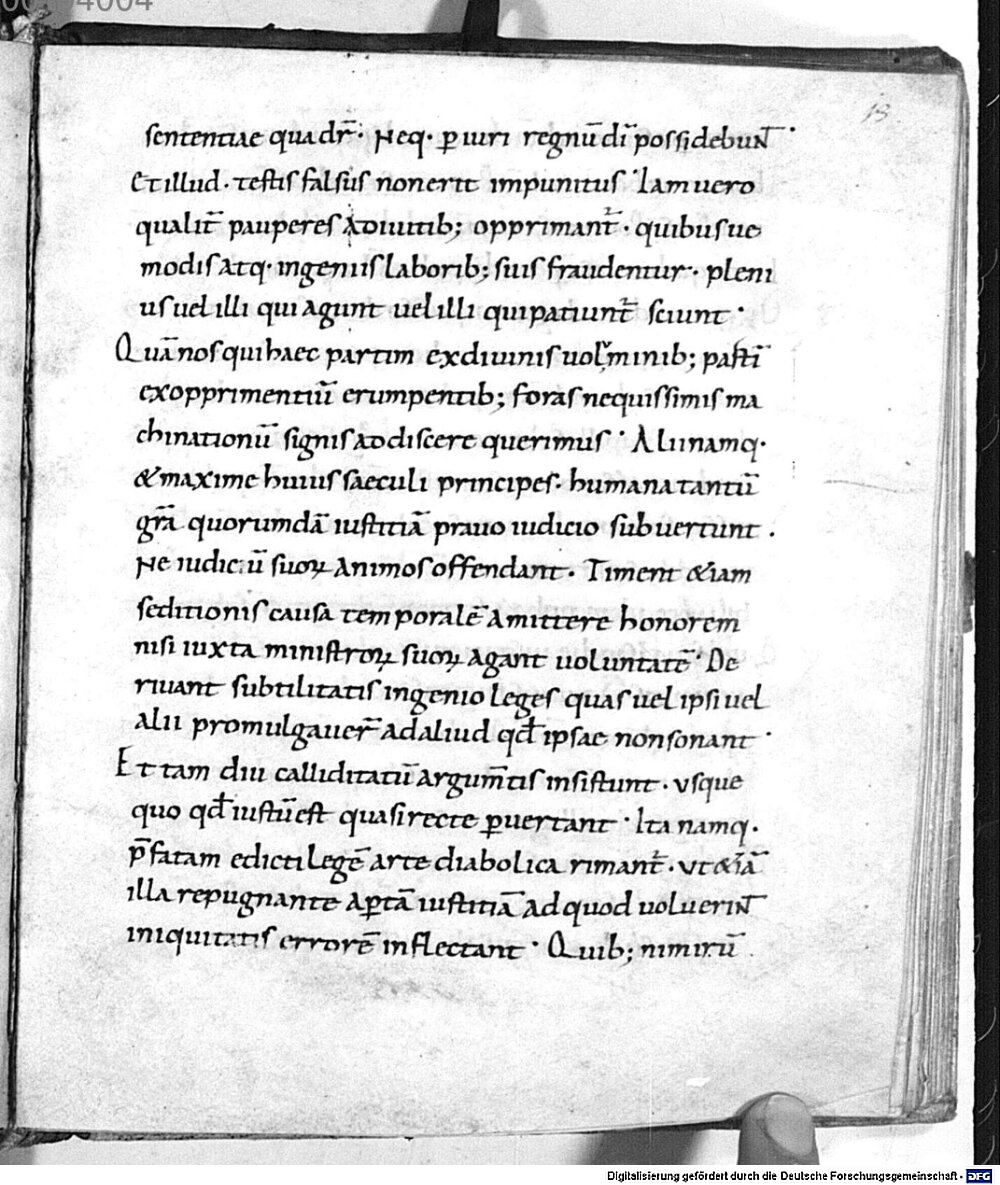 sententiae quadr̄· Neq· ꝑiuri regnū dī possidebuNT̄·
Et illud· testis falsus non erit impunitus· Iam uero
qualit̄ pauperes a diuitib; opprimant̄· quibusue
modis atq· ingeniis laborib; suis fraudentur· pleni
us uel illi qui agunt uel illi qui patiunt̄ sciunt·
Quā nos qui haec partim ex diuinis uolūminib; partī
ex opprimentiū erumpentib; foras nequissimis ma
chinationū signis addiscere querimus· Alii namq·
& maxime huius saeculi principes· humana tantū
gr̄a quorundā iustitiā prauo iudicio subuertunt·
Ne iudicū suoꝝ animos offendant· Timent &iam
seditionis causa temporalē amittere honorem
nisi iuxta ministroꝝ suoꝝ agant uoluntatē· De
riuant subtilitatis ingenio leges quas uel ipsi uel
alii promulgauer̄ ad aliud qđ ipsae non sonant·
Et tam diu calliditatū argum̄tis insistunt· usque
quo qđ iustū est quasi recte ꝑuertant· Ita namq·
p̄fatam edicti legē arte diabolica rimant̄· ut &iā
illa repugnante aꝑtā iustitiā ad quod uolueriNT̄
iniquitatis errorē inflectant· Quib; nimirū
13
Digitalisierung gefördert durch die Deutsche Forschungsgemeinschaft - DFG